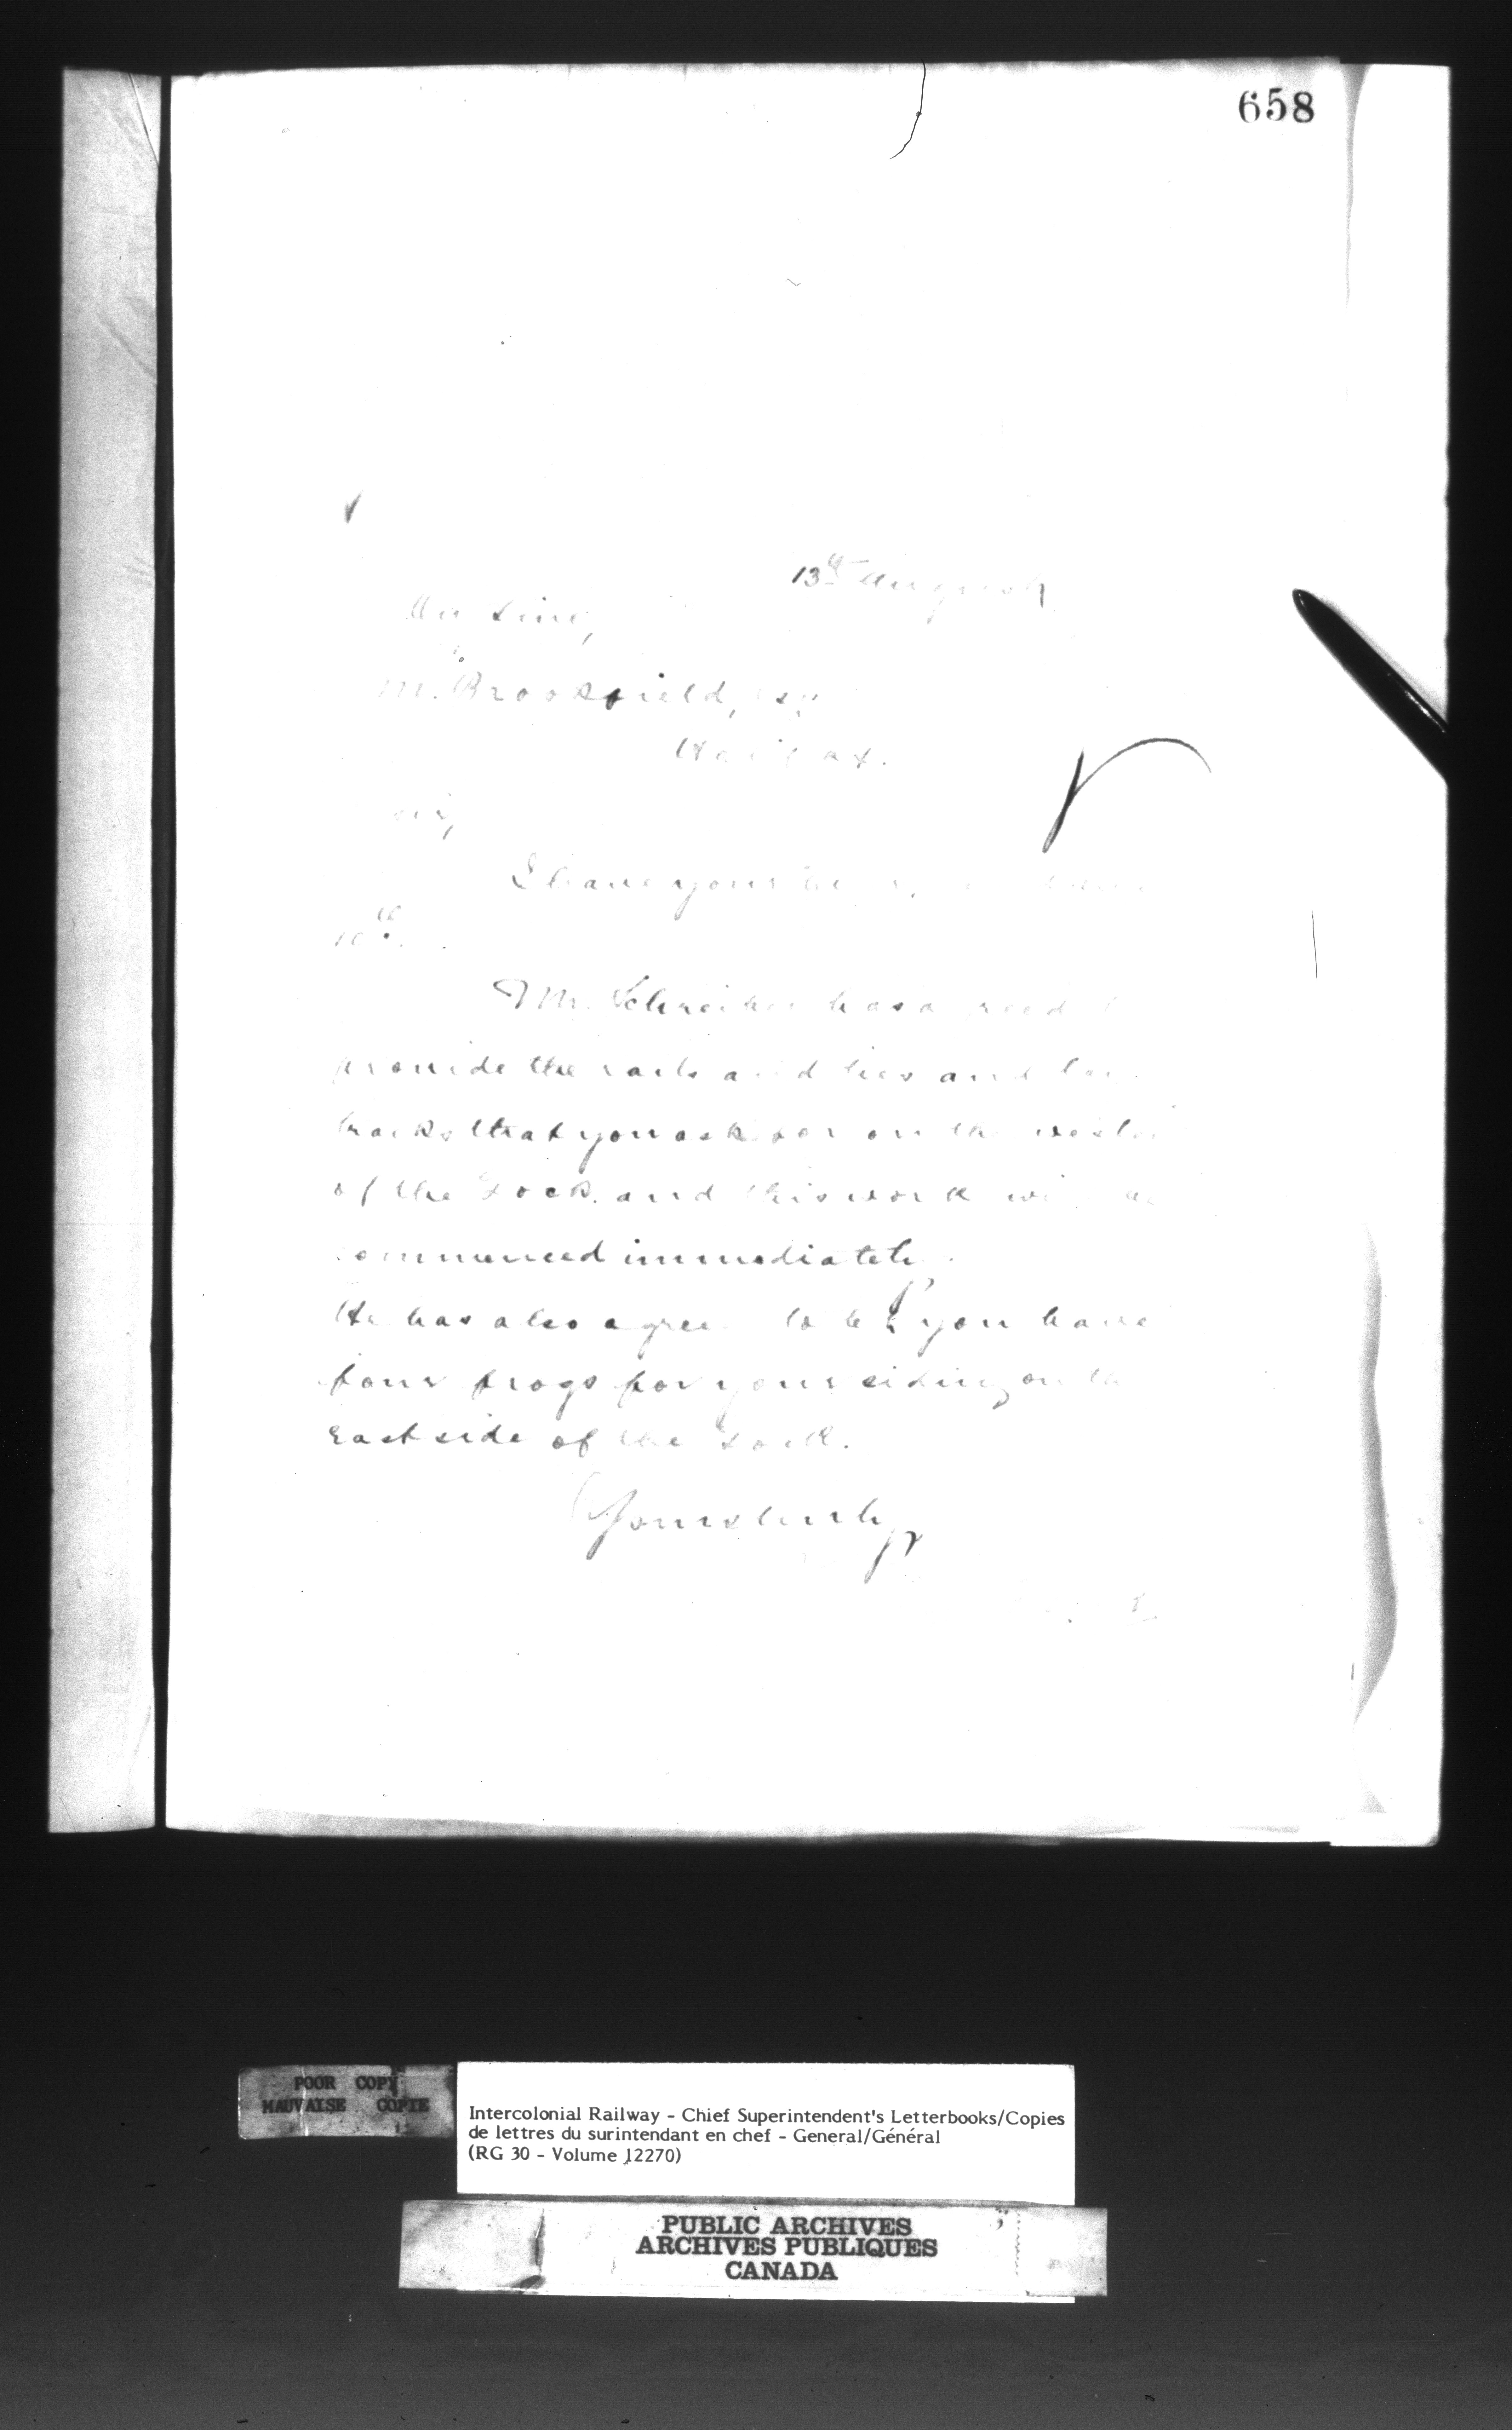 658
13th August
M. Brookfield, Esq
Halifax.
Sir,
I have your
10th.
Mr. Schreiber has agreed
provide the rails and ties and lay
tracks that you ask for on the
of the Dock. and this work will
commenced immediately.
He has also agreed to let you have
four frogs for your siding on the
East side of the Dock.
Yours truly,
POOR COPY
MAUVAISE COPIE
Intercolonial Railway - Chief Superintendent's Letterbooks/Copies
de lettres du surintendant en chef - General/Général
(RG 30 - Volume 12270)
PUBLIC ARCHIVES
ARCHIVES PUBLIQUES
CANADA